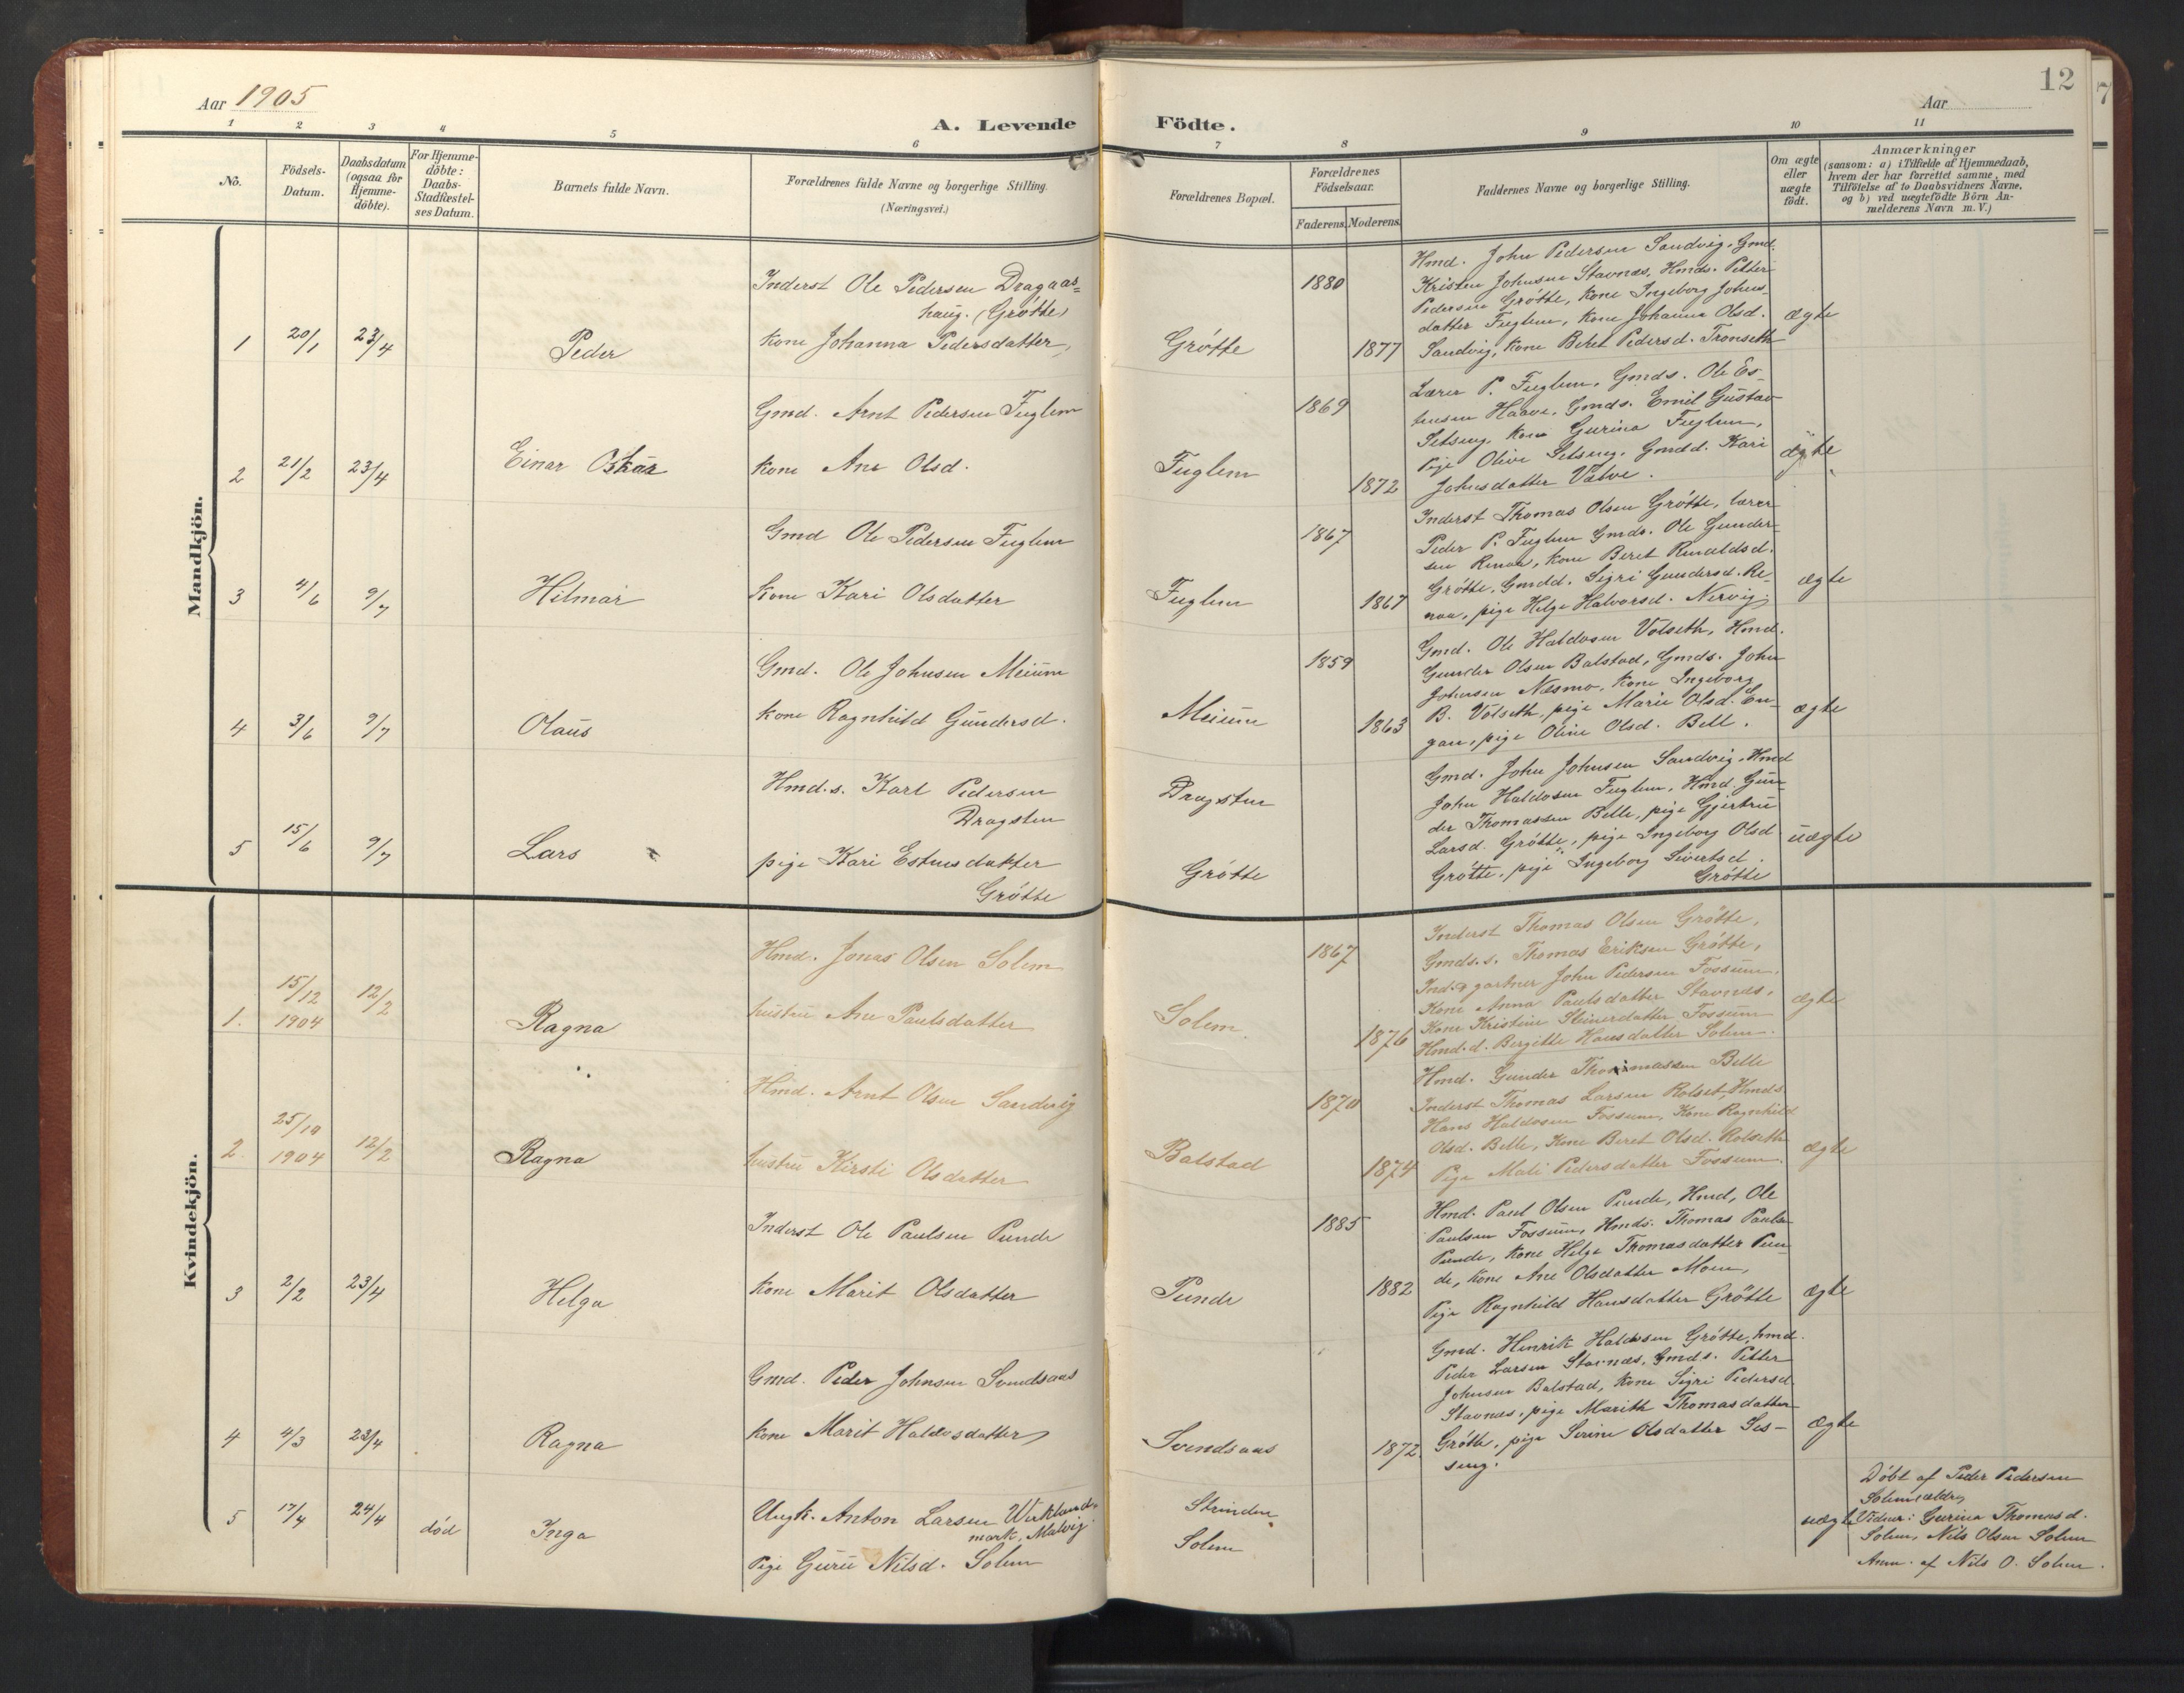 12
Aar 1905
Aar
A. Levende Födte.
1 2 3 4 5 6 7 8 9 10 11
No.
Födsels-
Datum.
Daabsdatum
(ogsaa for
Hjemme-
döbte).
For Hjemme-
döbte:
Daabs-
Stadfæstel-
ses Datum.
Barnets fulde Navn.
Forældrenes fulde Navne og borgerlige Stilling.
(Næringsvei.)
Forældrenes Bopæl.
Forældrenes
Födselsaar.
Faderens. Moderens.
Faddernes Navne og borgerlige Stilling.
Om ægte
eller
uægte
födt.
Anmærkninger
(saasom: a) i Tilfælde af Hjemmedaab,
hvem der har forrettet samme, med
Tilföielse af to Daabsvidners Navne,
og b) ved uægtefödte Börn An-
melderens Navn m. V.)
Mandkjön.
1 20/1 23/4 Peder
Inderst Ole Pedersen Dragaas=
haug. (Grötte)
kone Johanna Pedersdatter,
Grötte
1880
1877
Hmd. John Pedersen Sandvig, Gmd.
Kristen Johnsen Stavnæs, Hmds. Petter
Pedersen Grötte, kone Ingeborg Johns-
datter Fuglem, kone Johanna Olsd.
Sandvig, kone Beret Pedersd. Tronseth
ægte
2 21/2 23/4 Einar Oskar
Gmd. Arnt Pedersen Fuglem
kone Ane Olsd.
Fuglem
1869
1872
Lærer P. Fuglem, Gmds. Ole Es-
tensen Haave, Gmds. Emil Gustav
Selseng, kone Gurina Fuglem,
Pige Olive Selseng, Gmdd. Kari
Johnsdatter Vatve.
ægte
3 4/6 9/7 Hilmar
Gmd Ole Pedersen Fuglem
kone Kari Olsdatter
Fuglem
1867
1867
Inderst Thomas Olsen Grötte, lærer
Peder P. Fuglem Gmds. Ole Gunder-
sen Renaa, kone Beret Renaldsd.
Grötte, Gmdd. Sigri Gundersd. Re-
naa, pige Helge Halvorsd. Nervig.
ægte
4 3/6 9/7 Olaus
Gmd. Ole Johnsen Meium
kone Ragnhild Gundersd.
Meium
1859
1863
Gmd. Ole Haldosen Volseth, Hmd.
Gunder Olsen Balstad, Gmds. John
Johnsen Næsmo, kone Ingeborg
B. Volseth, pige Marie Olsd. En-
gan, pige Oline Olsd. Bell.
ægte
5 15/6 9/7 Lars
Hmd.s. Karl Pedersen
Dragsten
pige Kari Estensdatter
Grötte
Dragsten
Grötte
Gmd. John Johnsen Sandvig, Hmd
John Haldosen Fuglem, Hmd. Gun-
der Thomassen Belle, pige Gjertru
Larsd. Grötte, pige Ingeborg Olsd
Grötte, pige Ingeborg Sivertsd.
Grötte
uægte
Kvindekjön.
1. 15/12 1904 12/2 Ragna
Hmd. Jonas Olsen Solem
hustru Ane Paulsdatter
Solem
1867
1876
Inderst Thomas Olsen Grötte,
Gmds.s. Thomas Eriksen Grötte,
Ind. gartner John Pedersen Fossum,
Kone Anna Paulsdatter Stavnæs,
Kone Kristine Steinersdatter Fossum
Hmd.d. Bergitte Hansdatter Solem.
ægte
2. 25/10 1904 12/2 Ragna
Hmd. Arnt Olsen Sandvig
hustru Kirsti Olsdatter
Balstad
1870
1874
Hmd. Gunder Thommassen Belle
Inderst Thomas Larsen Rolset, Hmds
Hans Haldosen Fossum, Kone Ragnhild
Olsd. Belle, Kone Beret Olsd. Rolseth
Pige Mali Pedersdatter Fossum.
ægte
3 2/2 23/4 Helga
Inderst Ole Paulsen Punde
kone Marit Olsdatter
Punde
1885
1882
Hmd. Paul Olsen Punde, Hmd, Ole
Paulsen Fossum, Hmds. Thomas Pauls-
Punde, kone Helge Thomasdatter Pun-
de, kone Ane Olsdatter Moen,
Pige Ragnhild Hansdatter Grötte
ægte
4 4/3 23/4 Ragna
Gmd. Peder Johnsen Svendsaas
kone Marit Haldosdatter,
Svendsaas
1872
Gmd. Henrik Haldosen Grötte, hmd.
Peder Larsen Stavnæs, Gmds. Petter
Johnsen Balstad, kone Sigri Pedersd.
Stavnæs, pige Marith Thomasdatter
Grötte, pige Serine Olsdatter Ses-
seng.
ægte
5 17/4 24/4 död Inga
Ungk. Anton Larsen Wirkland.
mark, Malvig.
Pige Guru Nilsd. Solem
Strinden
Solem
uægte
Döbt af Peder Pedersen
Solem ældre,
Vidner: Gurina Thomasd.
Solem, Nils Olsen Solem
Anm. af Nils O. Solem.